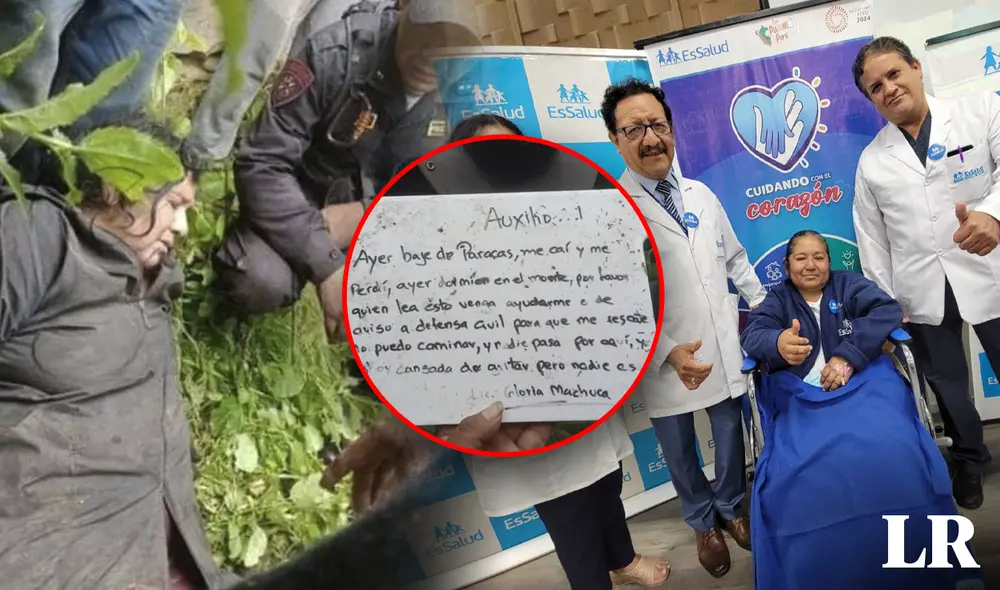 Auxilio...!
Ayer baje de Paracas, me caí y me
Perdí, ayer dormí en el monte, por favor
quien lea esto venga ayudarme o de
aviso a defensa civil para que me rescate
no puedo caminar, y nadie pasa por aquí, y
cansada de gritar pero nadie es
Lic. Gloria Machuca
EsSalud
EsSalud
EsSalud
Perú
2024
CUIDANDO CON EL
corazón
EsSalud
EsSalud
EsSalud
EsSalud
LR